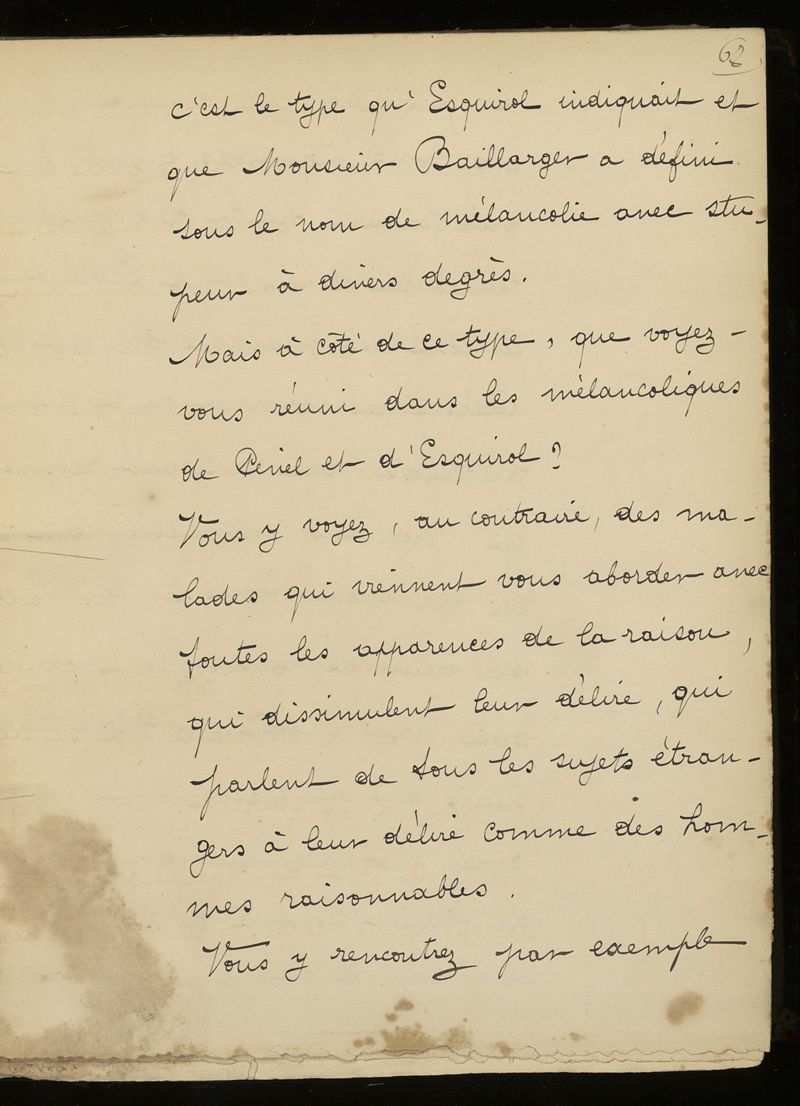 62
c'est le type qu'Esquirol indiquait et
que Monsieur Baillarger a défini
sous le nom de mélancolie avec stu-
peur à divers degrès.
Mais à côté de ce type, que voyez-
vous réuni dans les mélancoliques
de Peniel et d'Esquirol ?
Vous y voyez, au contraire, des ma-
lades qui viennent vous aborder avec
toutes les apparences de la raison,
qui dissimulent leur délire, qui
parlent de tous les sujets étran-
gers à leur délire comme des hom-
mes raisonnables.
Vous y rencontrez par exemple